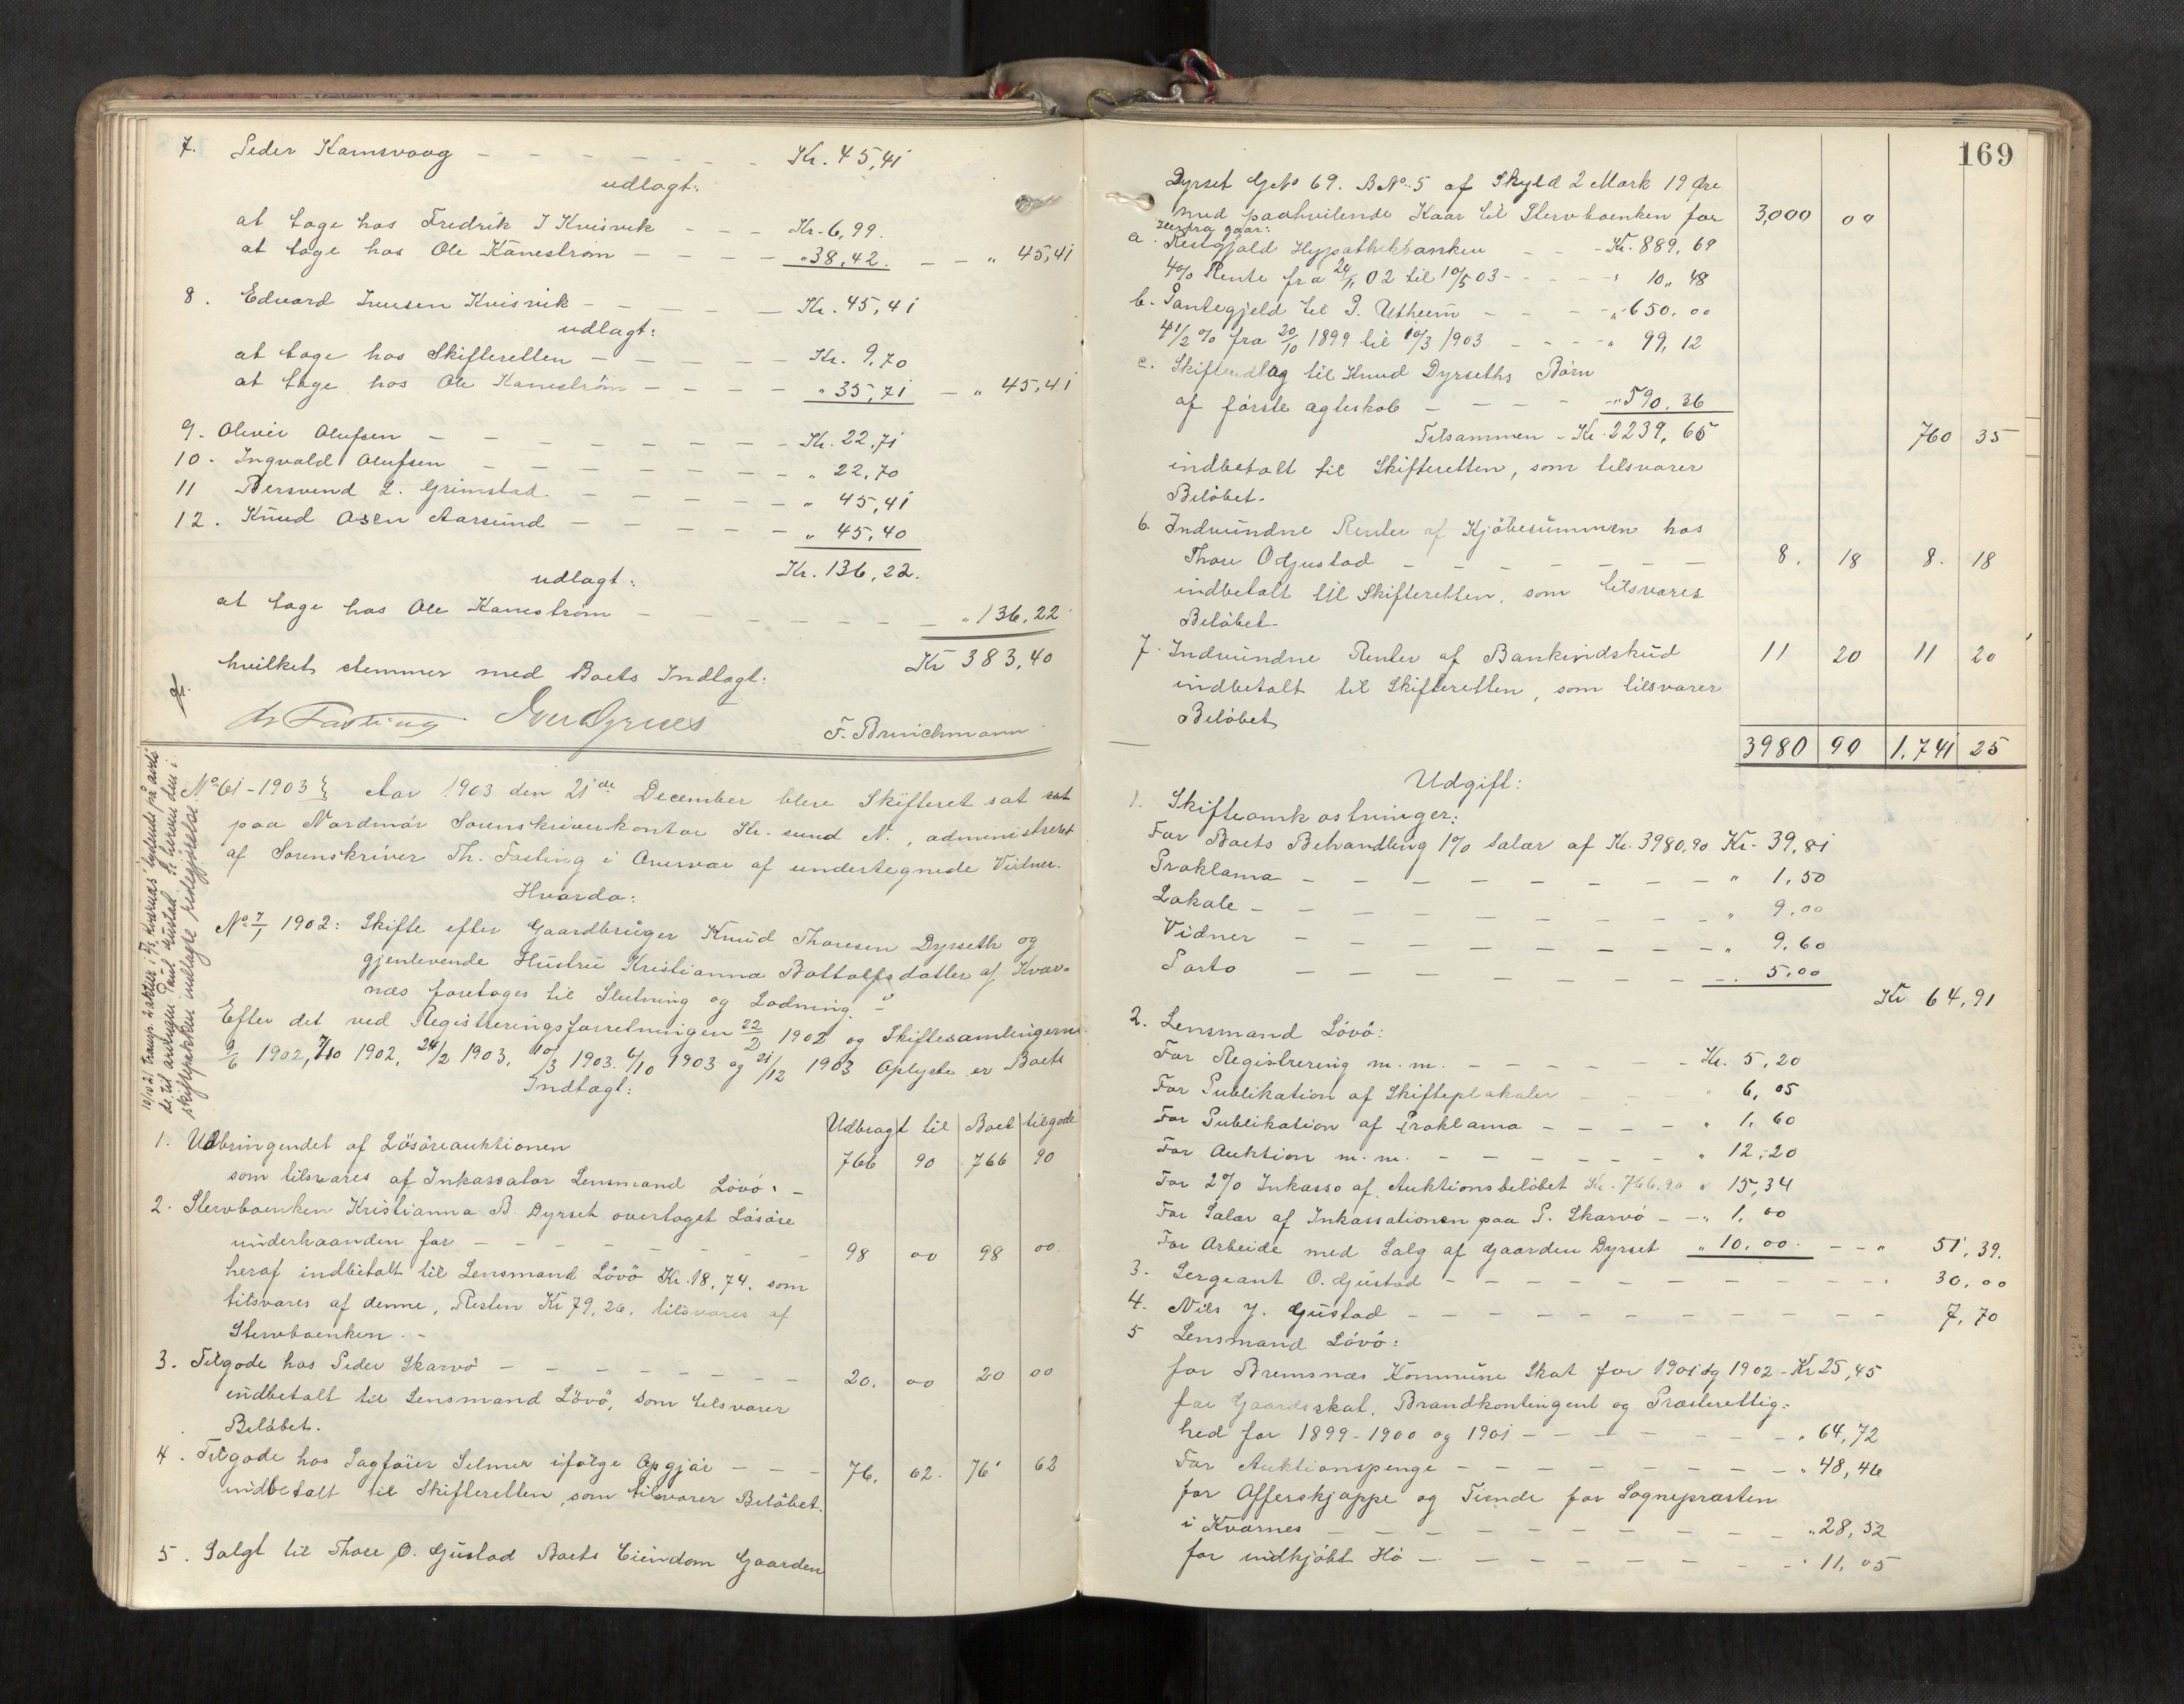 7. Peder Kamsvaag - - - - - - - Kr. 45,41
udlagt:
at tage hos Fredrik I Kvisvik - - - Kr. 6,99.
at tage hos Ole Kanestrøm - - - - " 38,42. - - " 45,41
8. Edvard Iversen Kvisvik - - - - - Kr. 45,41
udlagt:
at tage hos Skifteretten - - - - - Kr. 9,70
at tage hos Ole Kanestrøm - - - - " 35,71 - " 45,41
9. Oliver Olufsen - - - - - - - - Kr. 22,71
10. Ingvald Olufsen - - - - - - - " 22,70
11 Bersvend L. Grimstad - - - - - " 45,41
12. Knud Osen Aarsund - - - - - " 45,40
Kr. 136,22.
udlagt:
at tage hos Ole Kanestrøm - - - - - - - " 136,22
hvilket stemmer med Boets Indtægt: Kr 383,40
Th Fasting F. Brinchmann
No 61-1903 } Aar 1903 den 21de December blev Skifteret sat sat
paa Nordmør Sorenskriverkontor Kr.sund N., administreret
af Sorenskriver Th. Fasting i Overvær af undertegnede Vidner.
Hvorda:
No 7/1 1902: Skifte efter Gaardbruger Knud Thoresen Dyrseth og
gjenlevende Hustru Kristianna Bottolfsdatter af Kvær-
næs foretages til Slutning og Lodning. -
Efter det ved Registreringsforretningen 22/2 1902 og Skiftesamlingerne
9/6 1902, 7/10 1902, 24/2 1903, 10/3 1903. 6/10 1903 og 21/12 1903 Oplyste er Boets
Indtægt:
Udbragt til | Boet tilgode
1. Udbringendet af Løsøreauktionen
som tilsvares af Inkassator Lensmand Løvø. - 766 90 766 90
2. Stervboenken Kristianna B. Dyrset overtaget Løsøre
underhaanden for - - - - - - - 98 00 98 00.
heraf indbetalt til Lensmand Løvø Kr. 18,74. som
tilsvares af denne, Resten Kr 79,26. tilsvares af
Stervboenken. -
3. Tilgode hos Peder Skarvø - - - - - - - 20. 00 20 00
indbetalt til Lensmand Løvø, som tilsvarer
Beløbet.
4. Tilgode hos Sagfører Selmer ifølge Opgjør - - - 76. 62. 76 62
indbetalt til Skifteretten, som tilsvarer Beløbet.
5. Solgt til Thore O. Gustad Boets Eiendom Gaarden
10/10 21 transp. 2 akter i
skiftepakken indlagte redegjørelse.
169
Dyrset GNo 69. BNo. 5 af Skyld 2 Mark 19 Øre
med paahvilende Kaar til Stervboenken for 3,000 00
Herfra gaar:
a. Restgjæld Hypothekbanken - - Kr. 889,69
4% Rente fra 24/11 02 til 10/5 03 - - - - " 10,48
b. Pantegjeld til P. Utheim - - - " 650.00
4 1/2 % fra 20/10 1899 til 10/3 1903 - - - - " 99,12
c. Skifteudlæg til Knud Dyrseths Børn
af første ægteskab - - - - " 590.36
Tilsammen - Kr. 2239,65 760 35
indbetalt til Skifteretten, som tilsvarer
Beløbet.
6. Indvundne Renter af Kjøbesummen hos
Thore O Gustad - - - - - - - 8. 18 8. 18
indbetalt til Skifteretten, som tilsvarer
Beløbet.
7. Indvundne Renter af Bankindskud 11 20 11 20
indbetalt til Skifteretten, som tilsvarer
Beløbet
3980 90 1.741 25
Udgift:
1. Skifteomkostninger:
For Boets Behandling 1% Salær af Kr. 3980,90 Kr. 39,81
Proklama - - - - - - - - - " 1,50
Lokale - - - - - - - - - - " 9.00
Vidner - - - - - - - - - - " 9.60
Porto - - - - - - - - - - 5.00
Kr 64,91
2. Lensmand Løvø:
For Registrering m.m. - - - - - - Kr. 5,20
For Publikation af Skifteplakater - - - " 6,05
For Publikation af Proklama - - - - " 1,60
For Auktion m.m. - - - - - - - " 12,20
For 2% Inkasso af Auktionsbeløbet Kr. 766.90 " 15,34
For Salær af Inkassationen paa P. Skarvø - - " 1,00
For Arbeide med Salg af Gaarden Dyrset " 10.00. - - " 51,39.
3. Sergeant O. Gustad - - - - - - - - - - - 30,00
4. Nils J. Gustad - - - - - - - - - - - - 7,70
5 Lensmand Løvø:
for Bremsnæs Kommune Skat for 1901 og 1902 - Kr 25,45
for Gaardsskat, Brandkontingent og Præsterettig-
hed for 1899-1900 og 1901 - - - - - - - - " 64,72
For Auktionspenge - - - - - - - - - - " 48,46
for Offerskjæppe og Tiende for Sognepræsten
i Kværnes - - - - - - - - - - - " 28,52
for indkjøbt Hø - - - - - - - - - - " 11,05